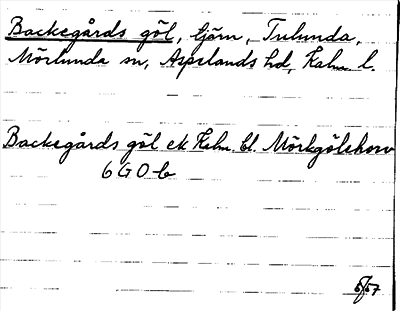 Backegårds göl, tjärn, Tulunda,
Mörlunda sn, Aspelands hd, Kalm. l.
Backegårds göl ek Kalm. bl. Mörkgölshorv
6 G O b
5/67